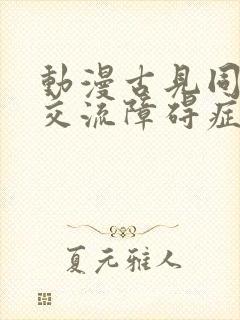 動漫古見同
交流障碍症
夏元雅人